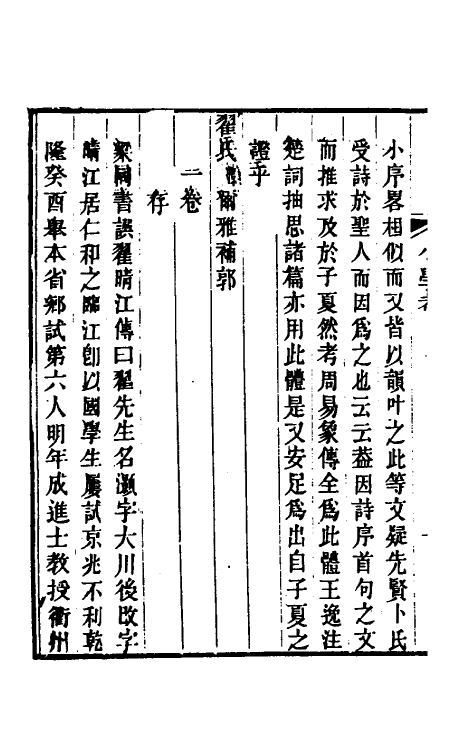 小序畧相似而又皆以韻叶之此等文疑先賢卜氏
受詩於聖人而因爲之也云云葢因詩序首句之文
而推求及於子夏然考周易象傳全爲此體王逸注
楚詞抽思諸篇亦用此體是又安足爲出自子夏之
證乎
翟氏灝爾雅補郭
二卷
存
梁同書譔翟晴江傳曰翟先生名灝字大川後改字
晴江居仁和之臨江卽以國學生屢試京兆不利乾
隆癸酉舉本省鄉試第六人明年成進士教授衢州